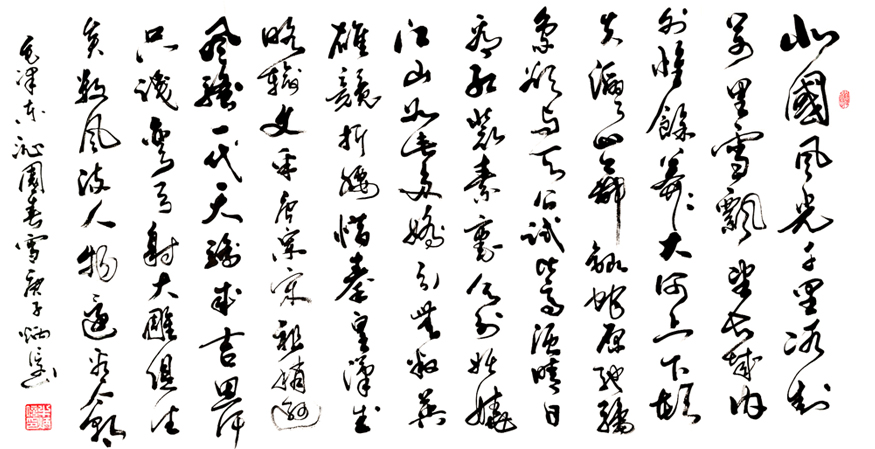 北國風光千里冰封
萬里雪飄望長城內
外惟餘莽々大河上下頓
失滔々山舞銀蛇原馳蠟
象欲與天公試比高須晴日
看紅裝素裹分外妖嬈
江山如此多嬌引無數英
雄競折腰惜秦皇漢武
略輸文采唐宗宋祖稍遜
風騷一代天驕成吉思汗
只識彎弓射大雕俱往
矣數風流人物還看今朝
毛澤東沁園春雪庚子炳